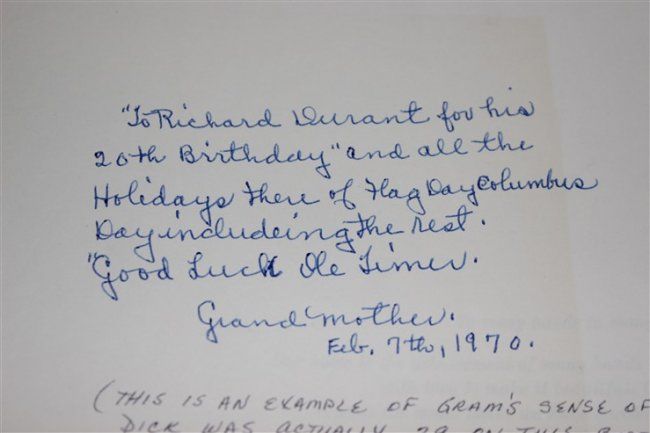 "To Richard Durant for his
20th Birthday" and all the
Holidays there of Flag Day Columbus
Day includeing the rest.
"Good Luck Ole Timer.
Grand mother.
Feb. 7th, 1970.
(THIS IS AN EXAMPLE OF GRAM'S SENSE OF
DICK WAS ACTUALLY 29 ON THIS